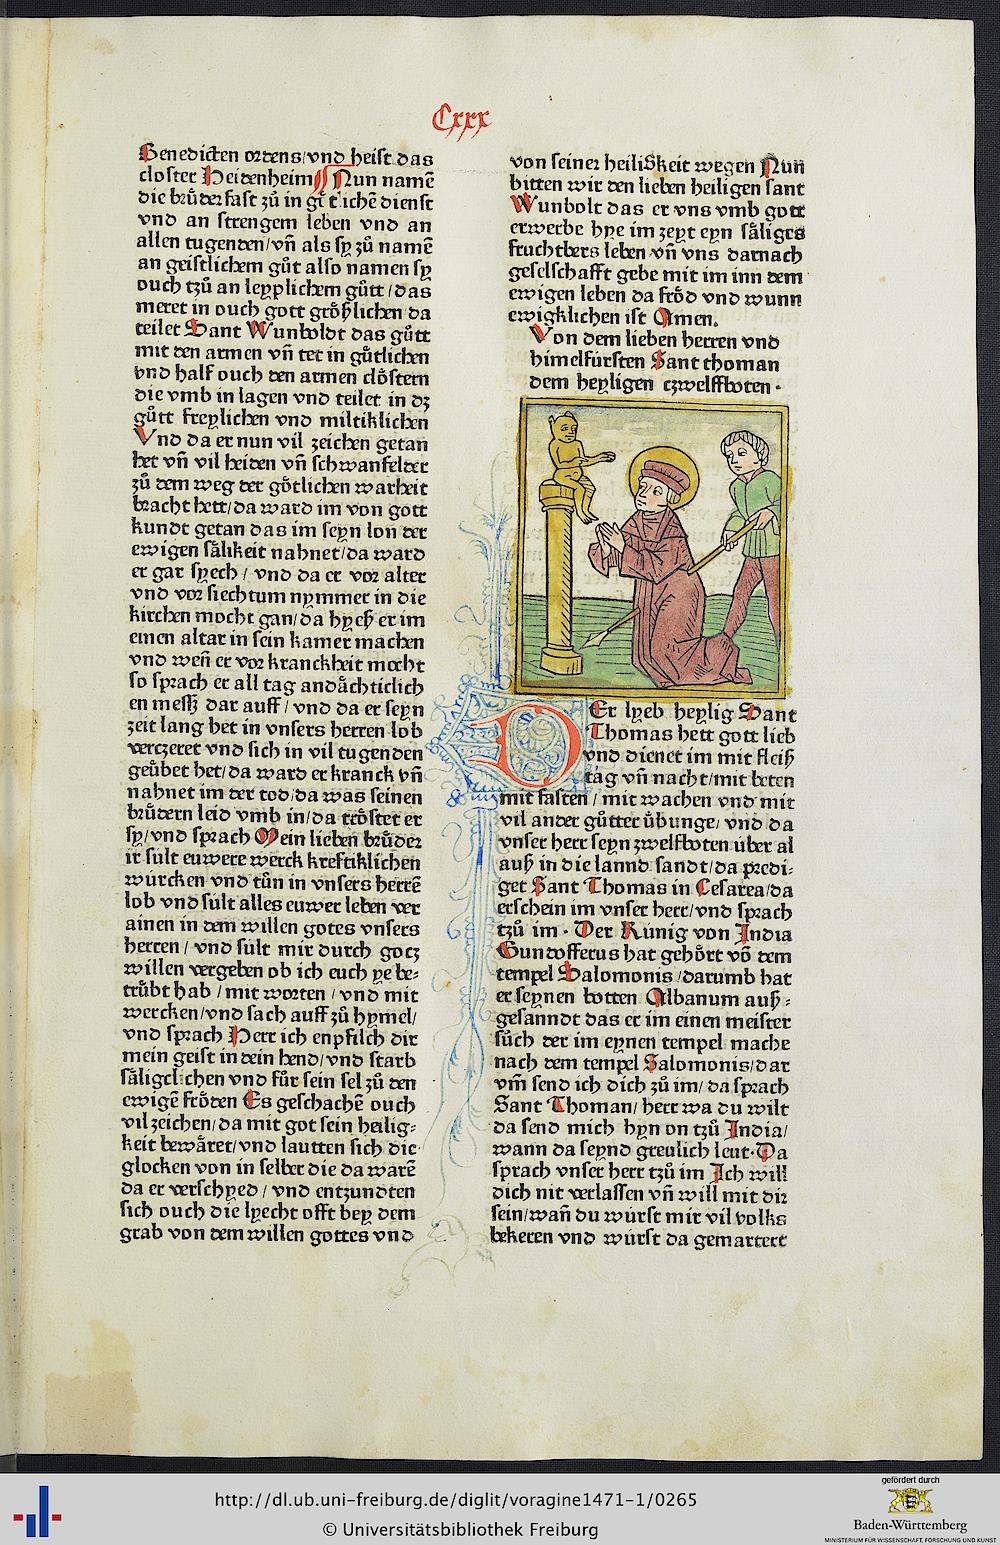 Cxxx
Benedicten ordens/vnd heist das
closter Heidenheim Nun namē
die brůder fast zů in götlichē dienst
vnd an strengem leben vnd an
allen tugenden/vn̄ als sy zů namē
an geistlichem gůt also namen sy
ouch tzů an leyplichem gůtt/das
meret in ouch gott größlichen da
teilet Sant Wunboldt das gůtt
mit den armen vn̄ tet in gůtlichen
vnd half ouch den armen clöstern
die vmb in lagen vnd teilet in dz
gůtt freylichen vnd miltiklichen
Vnd da er nun vil zeichen getan
het vn̄ vil heiden vn̄ schwanfelder
zů dem weg der götlichen warheit
bracht hett/da ward im von gott
kundt getan das im seyn lon der
ewigen sälikeit nahnet/da ward
er gar syech/vnd da er vor alter
vnd vor siechtum nymmer in die
kirchen mocht gan/da hyeß er im
einen altar in sein kamer machen
vnd wen̄ er vor kranckheit mocht
so sprach er all tag andächticlich
en messz dar auff/vnd da er seyn
zeit lang het in vnsers herren lob
verczeret vnd sich in vil tugenden
geübet het/da ward er kranck vn̄
nahnet im der tod/da was seinen
brůdern leid vmb in/da tröstet er
sy/vnd sprach Mein lieben brůder
ir sült euwere werck kreftiklichen
würcken vnd tůn in vnsers herrē
lob vnd sült alles euwer leben ver
ainen in dem willen gotes vnsers
herren/vnd sült mir durch gotz
willen vergeben ob ich euch ye be⸗
trübt hab/mit worten/vnd mit
wercken/vnd sach auff zů hymel/
vnd sprach Herr ich enpfilch dir
mein geist in dein hend/vnd starb
säligclichen vnd für sein sel zů den
ewigē fröden Es geschachē ouch
vil zeichen/da mit got sein heilig⸗
keit bewäret/vnd lautten sich die
glocken von in selber die da warē
da er verschyed/vnd entzundten
sich ouch die lyecht offt bey dem
grab von dem willen gottes vnd
von seiner heilikeit wegen Nun
bitten wir den lieben heiligen sant
Wunbolt das er vns vmb gott
erwerbe hye im zeyt eyn säligs
fruchtbers leben vn̄ vns darnach
geselschafft gebe mit im inn dem
ewigen leben da fröd vnd wunn
ewigklichen ist Amen.
Von dem lieben herren vnd
himelfürsten Sant thoman
dem heyligen czwelffboten.
DEr lyeb heylig Sant
Thomas hett gott lieb
vnd dienet im mit fleiß
tag vn̄ nacht/mit beten
mit fasten/mit wachen vnd mit
vil ander gůtter übunge/vnd da
vnser herr seyn zwelfboten über al
auß in die lannd sandt/da predi⸗
get Sant Thomas in Cesarea/da
erschein im vnser herr/vnd sprach
tzů im. Der Künig von India
Gundofferus hat gehört vō dem
tempel Salomonis/darumb hat
er seynen botten Albanum auß⸗
gesanndt das er im einen meister
sůch der im eynen tempel mache
nach dem tempel Salomonis/dar
vm̄ send ich dich zů im/da sprach
Sant Thoman/herr wa du wilt
da send mich hyn on tzů India/
wann da seynd greulich leut. Da
sprach vnser herr tzů im Ich will
dich nit verlassen vn̄ will mit dir
sein/wan̄ du würst mir vil volks
bekeren vnd würst da gemartert
http://dl.ub.uni-freiburg.de/diglit/voragine1471-1/0265
© Universitätsbibliothek Freiburg
gefördert durch
Baden-Württemberg
MINISTERIUM FÜR WISSENSCHAFT, FORSCHUNG UND KUNST